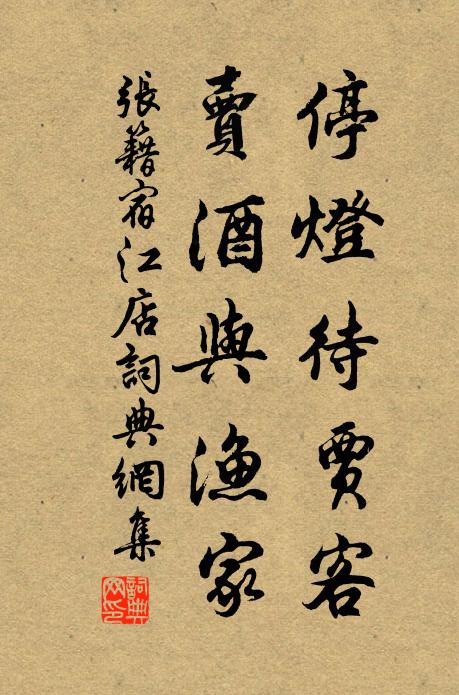 停燈待賈客
賣酒與漁家
張籍宿江店詞典網集
詞典网印